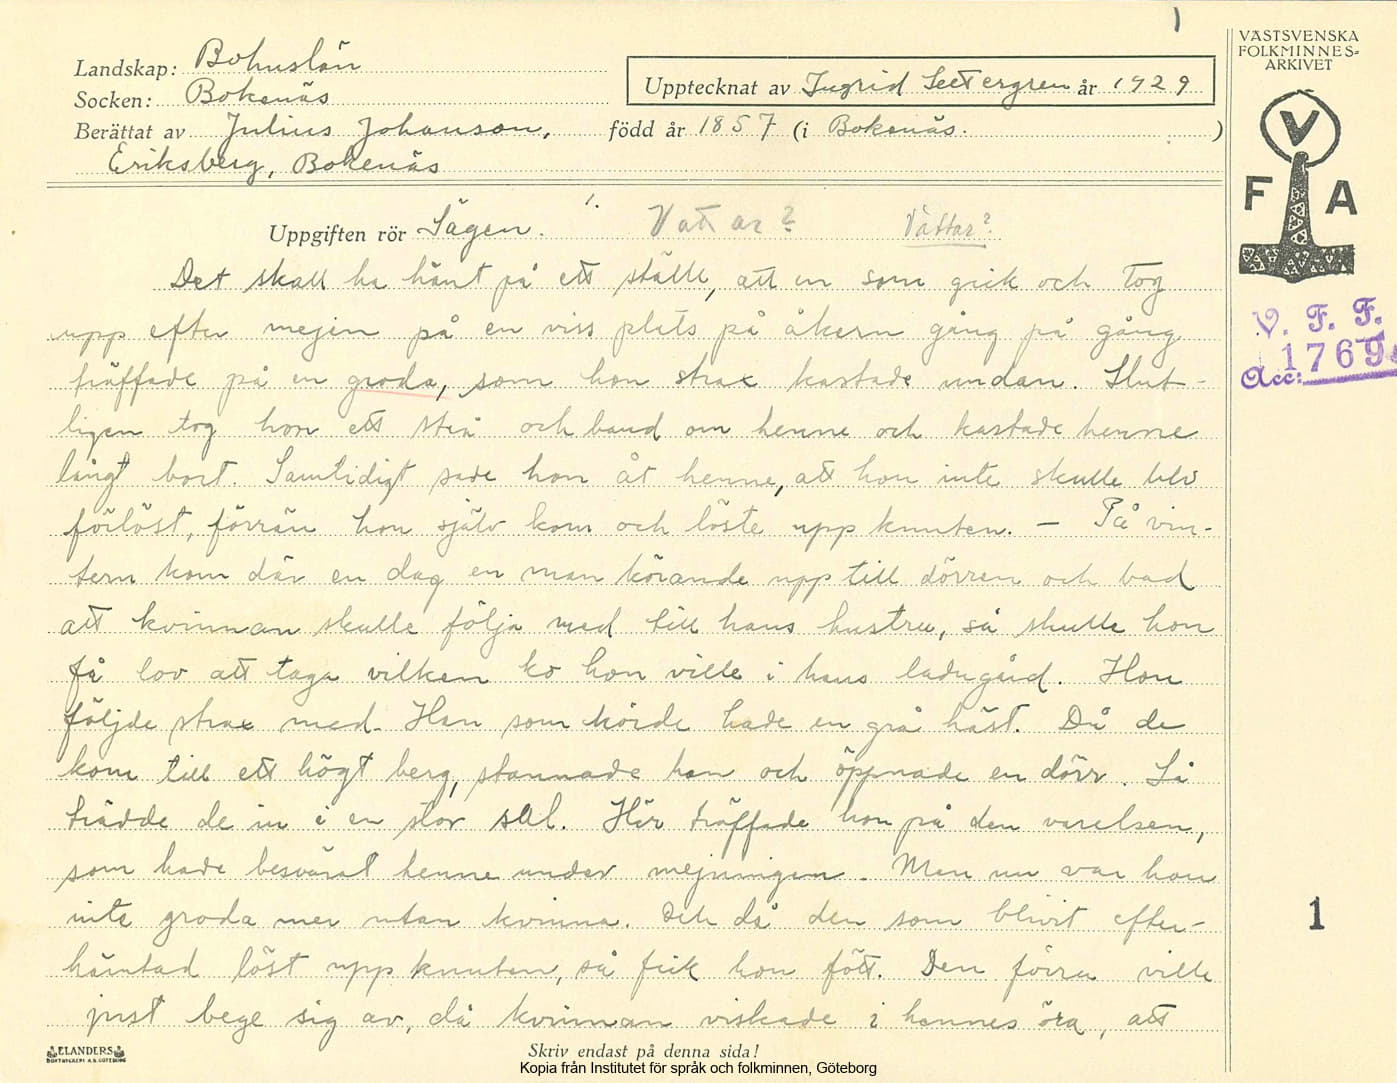 1
VÄSTSVENSKA
FOLKMINNES-
ARKIVET
Landskap: Bohuslän
Socken: Bokenäs
Upptecknat av Ingrid Settergren år 1929
Berättat av Julius Johanson, född år 1857 (i Bokenäs. )
Eriksberg, Bokenäs
V
F A
Uppgiften rör Sägen. 1. Vättar? Vättar?
V. F. F.
Acc: 1769
Det skall ha hänt på ett ställe, att en som gick och tog
upp efter mejen på en viss plats på åkern gång på gång
träffade på en groda, som hon strax kastade undan. Slut-
ligen tog hon ett strå och band om henne och kastade henne
långt bort. Samtidigt sade hon åt henne, att hon inte skulle bliv
förlöst, förrän hon själv kom och löste upp knuten. – På vin-
tern kom där en dag en man körande upp till dörren och bad
att kvinnan skulle följa med till hans hustru, så skulle hon
få lov att taga vilken ko hon ville i hans ladugård. Hon
följde strax med. Han som körde hade en grå häst. Då de
kom till ett högt berg, stannade han och öppnade en dörr. Så
trädde de in i en stor sal. Här träffade hon på den varelsen,
som hade besvärat henne under mejningen. Men nu var hon
inte groda mer utan kvinna. Och då den som blivit efter-
hämtad löst upp knuten, så fick hon fött. Den förra ville
just bege sig av, då kvinnan viskade i hennes öra, att
1
ELANDERS
BOKTRYCKERI A.B. GÖTEBORG
Skriv endast på denna sida!
Kopia från Institutet för språk och folkminnen, Göteborg